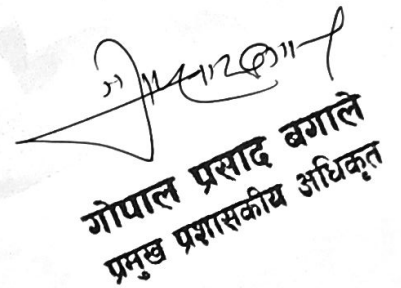 गोपाल प्रसाद बगाले
प्रमुख प्रशासकीय अधिकृत